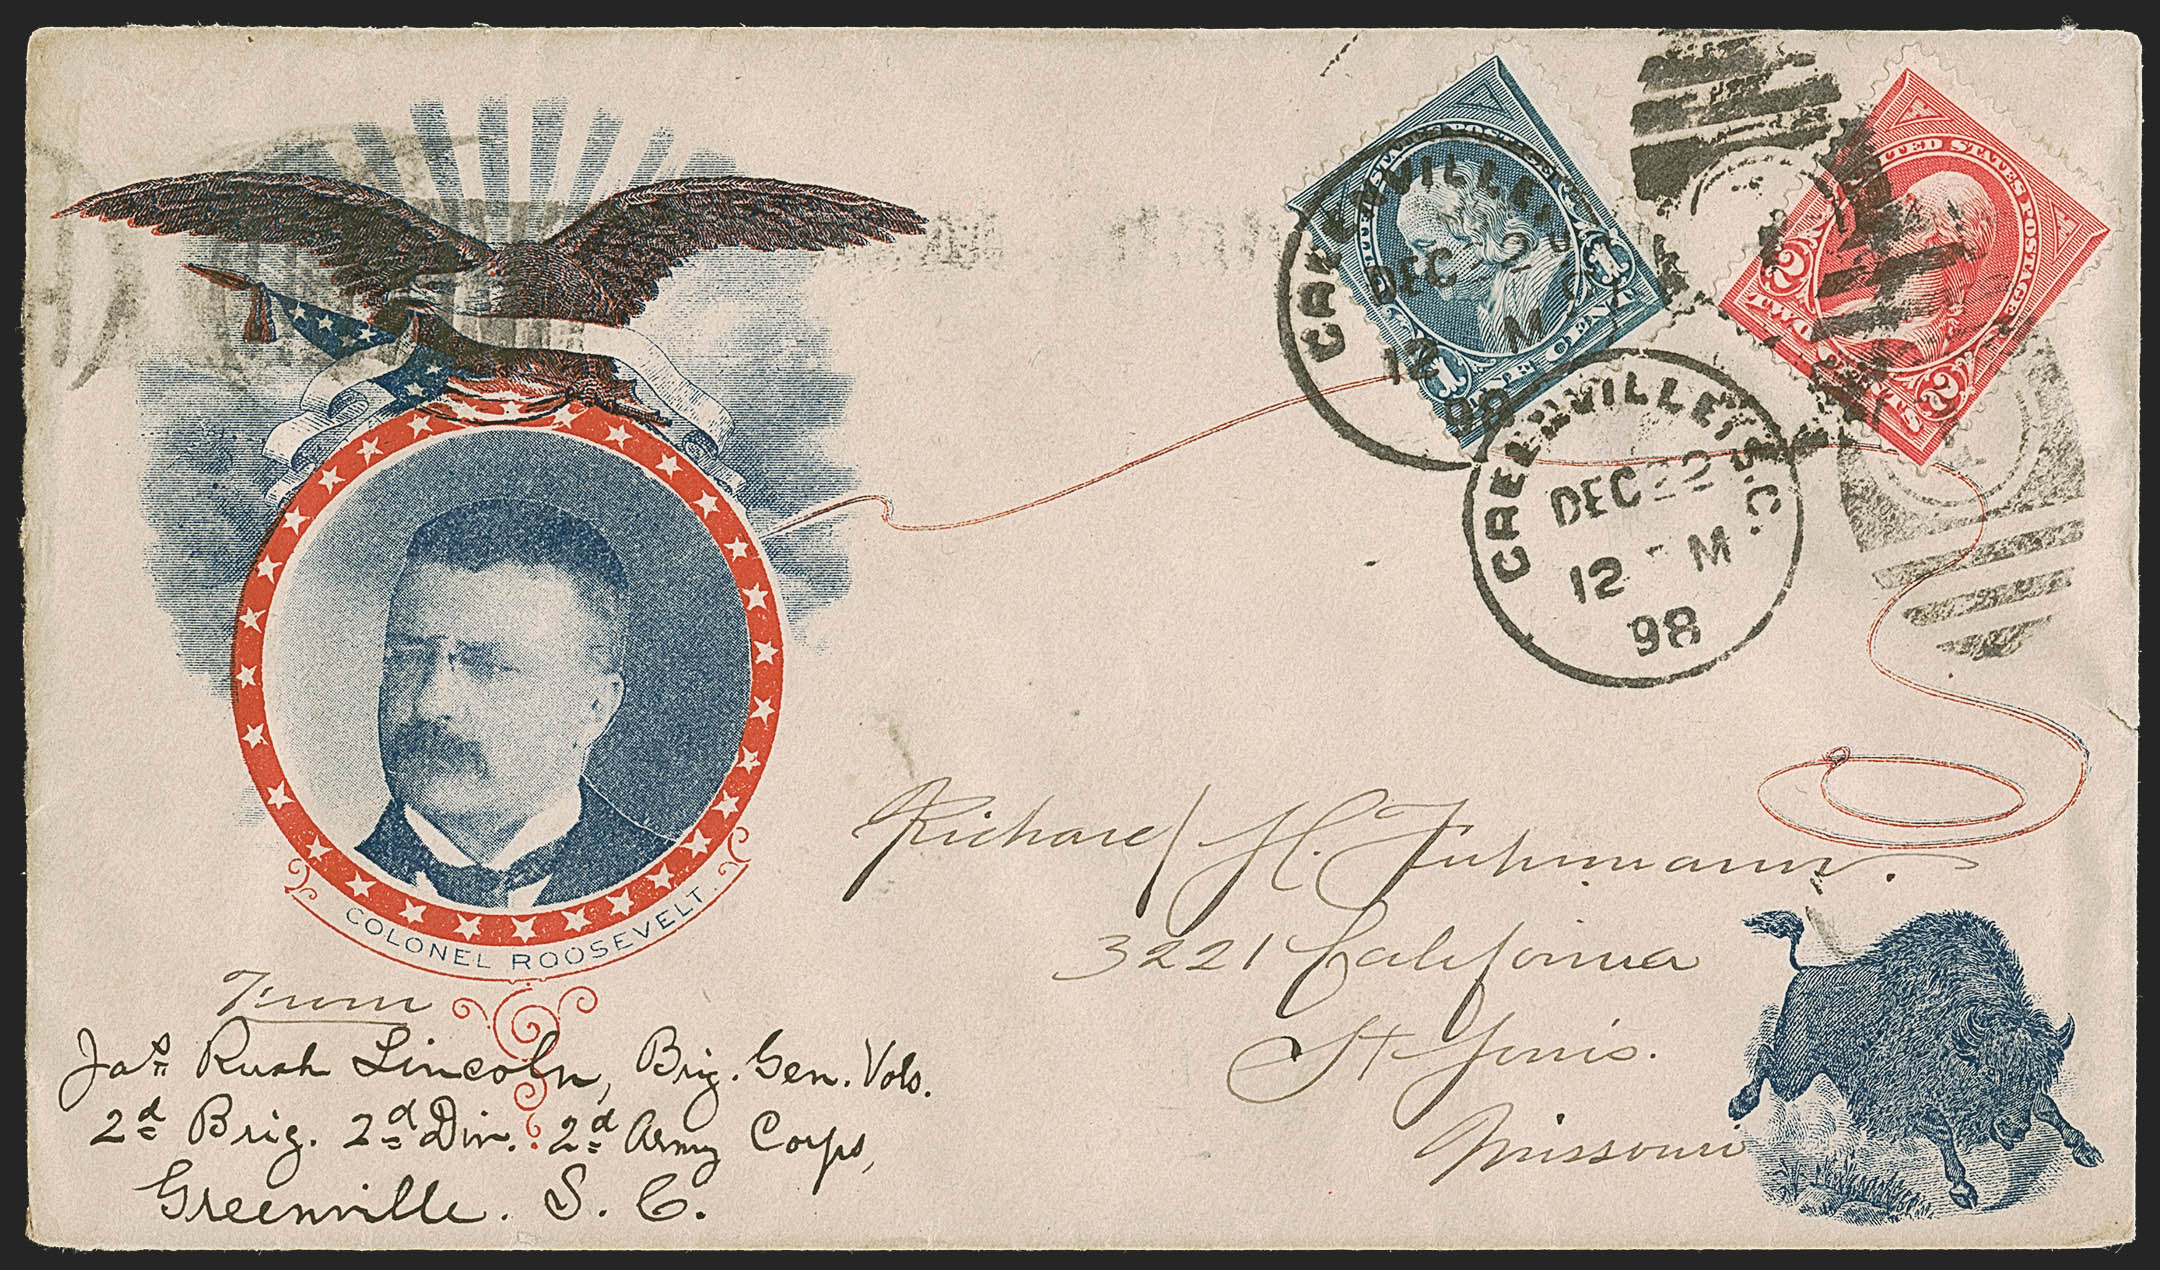 UNITED STATES POSTAGE
1 ONE CENT 1
UNITED STATES POSTAGE
2 TWO CENTS 2
GREENVILLE, S.C.
DEC 22
12 M
98
GREENVILLE, S.C.
DEC 22
12 M
98
COLONEL ROOSEVELT.
Richard H. Fuhrmann.
3221 California
St Louis.
Missouri
From
Jas Rush Lincoln, Brig. Gen. Vols.
2d Brig. 2d Div. 2d Army Corps,
Greenville. S. C.